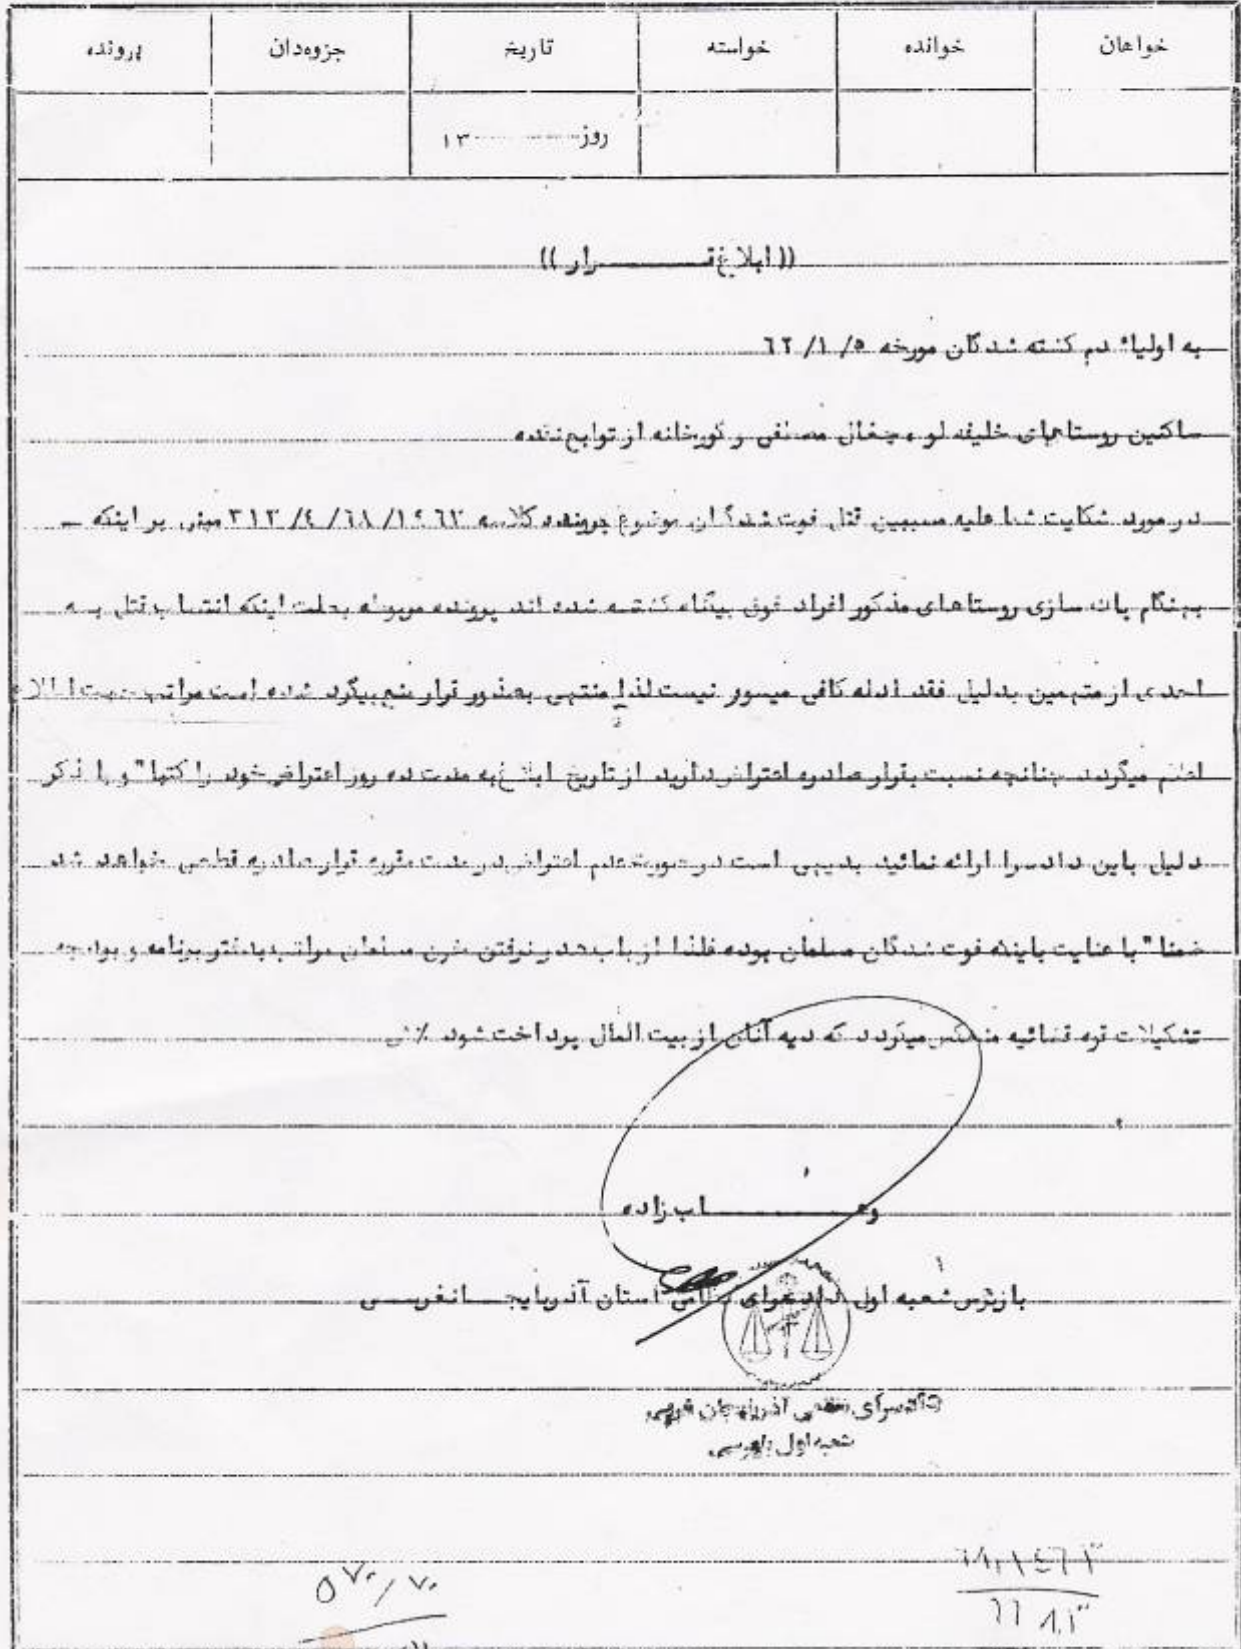 خواهان خوانده خواسته تاریخ جزوه‌دان پرونده
روز ۱۳
(( ابلاغ قــــــرار ))
به اولیاء دم کشته شدگان مورخه ۶۲/۱/۵
ساکنین روستاهای خلیفه لو ، چغال مصطفی و گورخانه از توابع نقده
در مورد شکایت شما علیه مسببین قتل فوت شدگان موضوع پرونده کلاسه مبنی بر اینکه ـ
بهنگام پاک سازی روستاهای مذکور افراد فوق بیگناه کشته شده اند پرونده مربوطه بعلت اینکه انتساب قتل به
احدی از متهمین بدلیل فقد ادله کافی میسور نیست لذا منتهی بصدور قرار منع پیگرد شده است مراتب جهت اطلاع
اعلام میگردد چنانچه نسبت بقرار صادره اعتراض دارید از تاریخ ابلاغ به مدت ده روز اعتراض خود را کتبا" و با ذکر
دلیل باین دادسرا ارائه نمائید بدیهی است در صورت عدم اعتراض در مدت مقرره قرار صادره قطعی خواهد شد
ضمنا" با عنایت باینکه فوت شدگان مسلمان بوده فلذا از باب هدر نرفتن خون مسلمان مراتب بدفتر برنامه و بودجه
تشکیلات قوه قضائیه منعکس میگردد که دیه آنان از بیت المال پرداخت شود ٪
وهــــــاب زاده
بازپرس شعبه اول دادسرای نظامی استان آذربایجـــان غربـــی
دادسرای نظامی آذربایجان غربی
شعبه اول بازپرسی
۵۷۰/۷۰